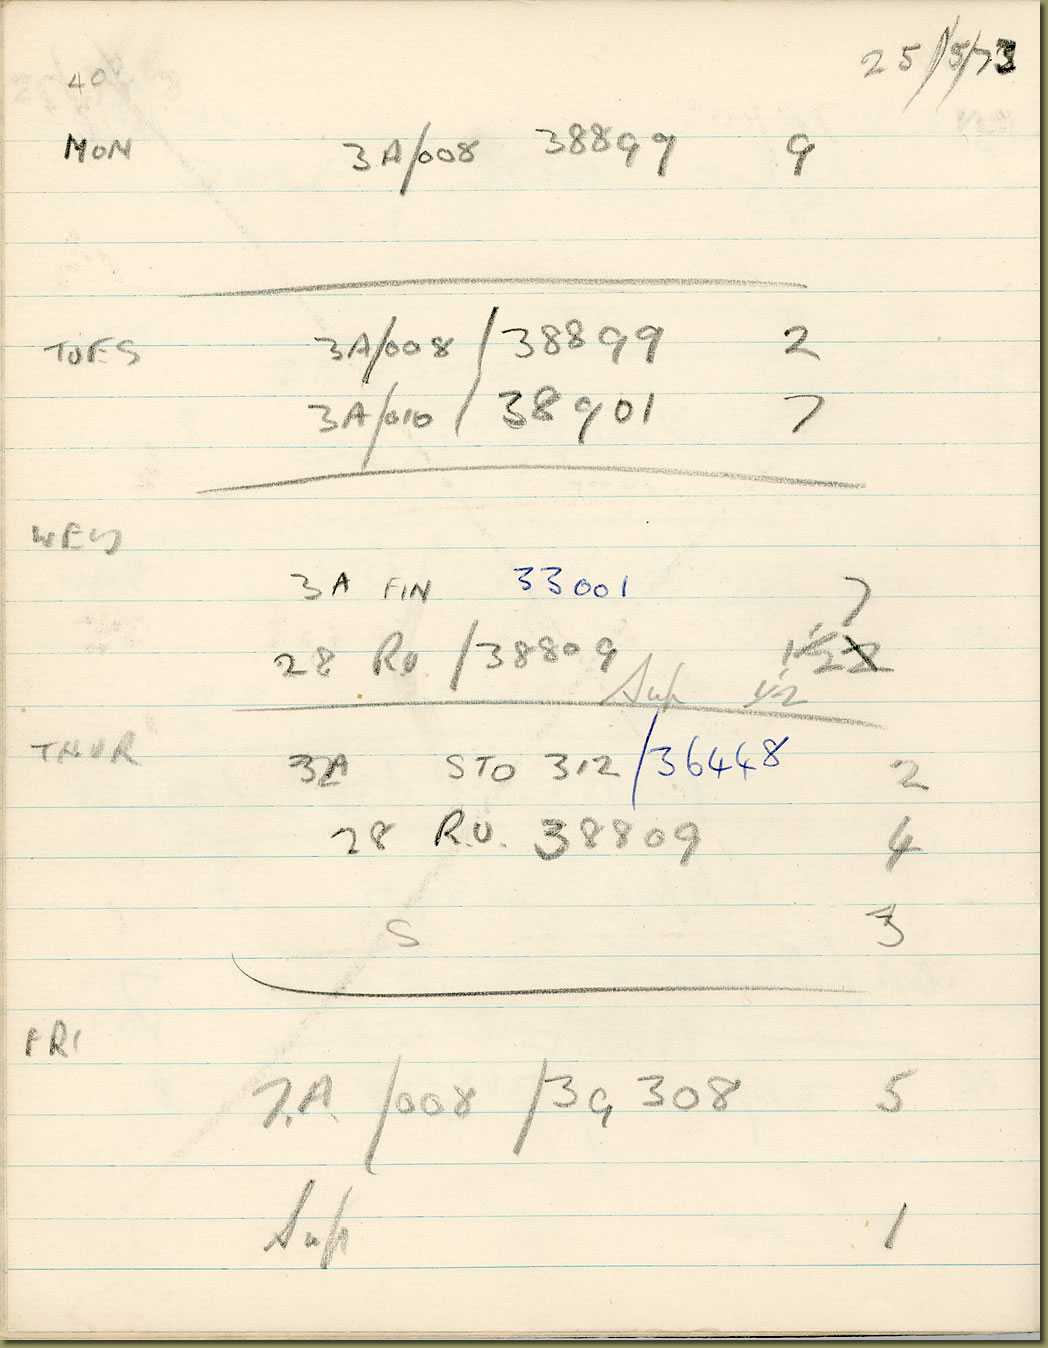 25/5/73
40
MON 3A/008 38899 9
TUES 3A/008 / 38899 2
3A/010 / 38901 7
WED
3A FIN 33001 7
28 RU / 38809 1½
Sup ½
THUR 3A STO 312 / 36448 2
28 R.U. 38809 4
S 3
FRI
7.A. /008 /39308 5
Sup 1